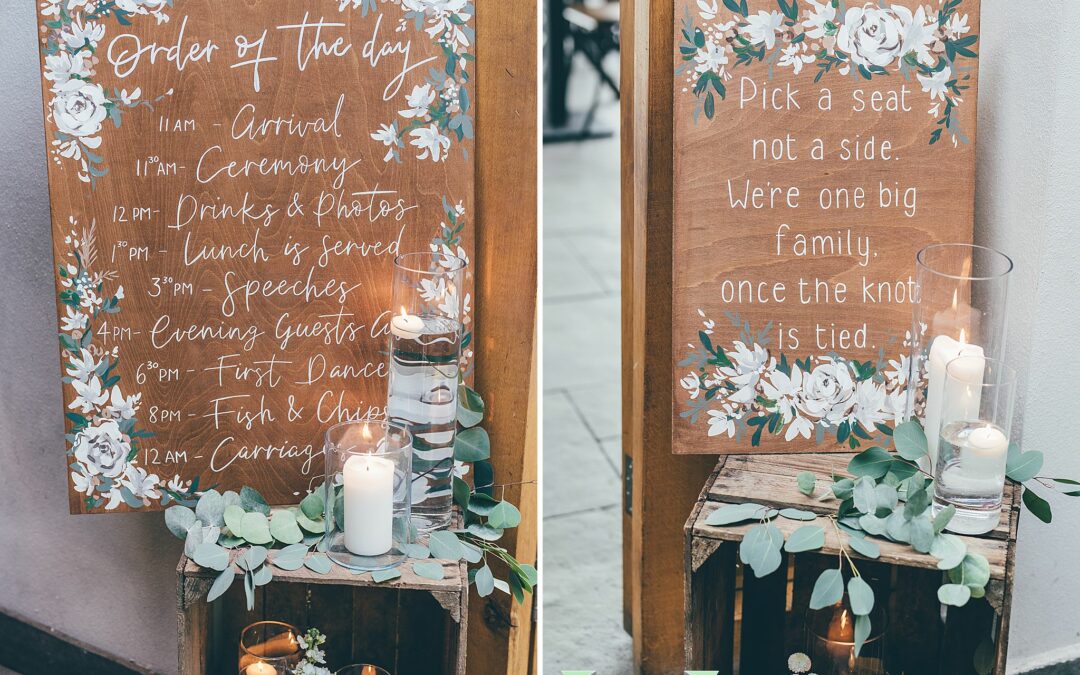 Order of the day
11 AM - Arrival
11 30 AM - Ceremony
12 PM - Drinks & Photos
1 30 PM - Lunch is served
3 30 PM - Speeches
4 PM - Evening Guests
6 30 PM - First Dance
8 PM - Fish & Chips
12 AM - Carriages
Pick a seat
not a side.
We're one big
family,
once the knot
is tied.